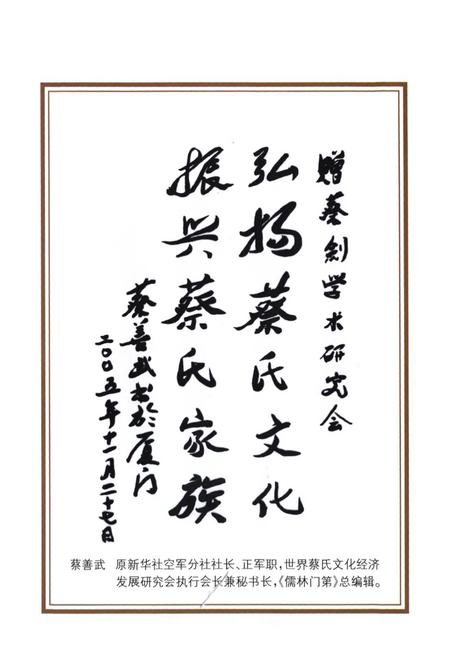 赠蔡剑学术研究会
弘扬蔡氏文化
振兴蔡氏家族
蔡善武书於厦门
二〇〇五年十一月二十七日
蔡善武 原新华社空军分社社长、正军职,世界蔡氏文化经济
发展研究会执行会长兼秘书长,《儒林门第》总编辑。